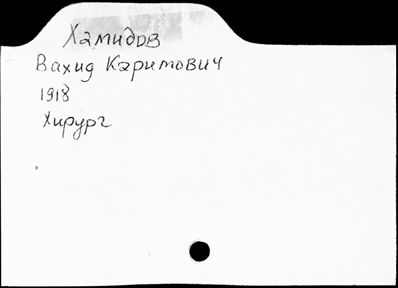 Хамидов
Вахид Каримович
1918
Хирург